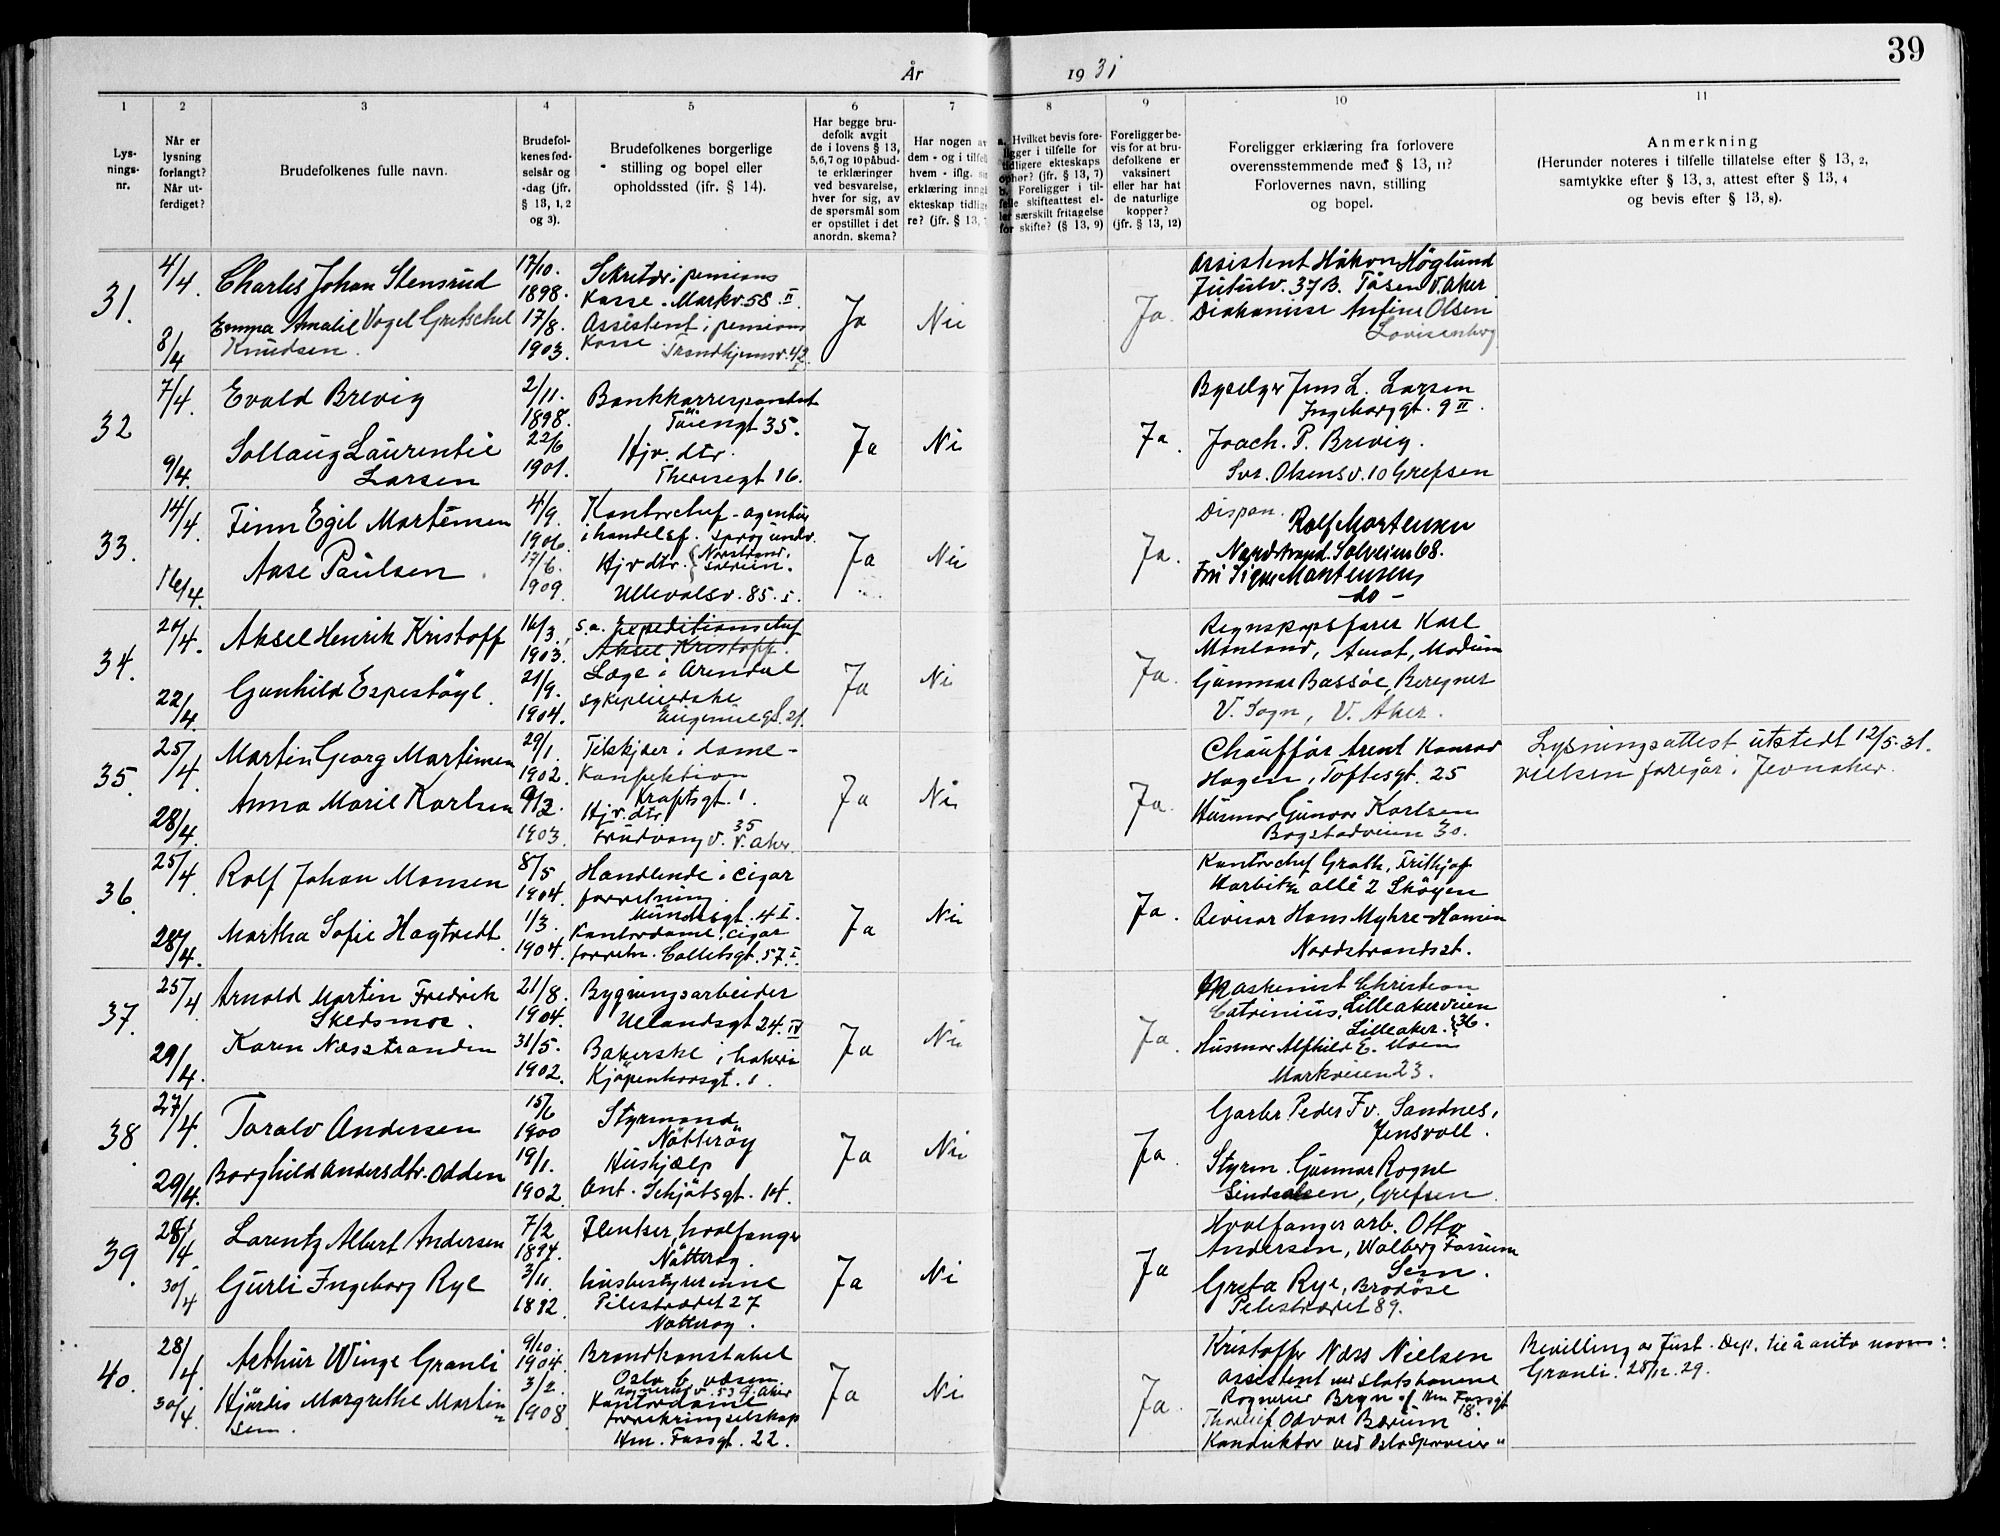 39
År 1931
1
2
3
4
5
6
7
8
9
10
11
Lys-
nings-
nr.
Når er
lysning
forlangt?
Når ut-
ferdiget?
Brudefolkenes fulle navn.
Brudefol-
kenes fød-
selsår og
-dag (jfr.
§ 13, 1, 2
og 3).
Brudefolkenes borgerlige
stilling og bopel eller
opholdssted (jfr. § 14).
Har begge bru-
defolk avgit
de i lovens § 13,
5, 6, 7 og 10 påbud-
te erklæringer
ved besvarelse,
hver for sig, av
de spørsmål som
er opstillet i det
anordn. skema?
Har nogen av
dem - og i tilfelle
hvem - iflg.
erklæring inngå
ekteskap tidlige
re? (jfr. § 13,
a. Hvilket bevis fore-
ligger i tilfelle for
tidligere ekteskaps
ophør? (jfr. § 13, 7)
b. Foreligger i til-
felle skifteattest el-
ler særskilt fritagelse
for skifte? (§ 13, 9)
Foreligger be-
vis for at bru-
defolkene er
vaksinert
eller har hat
de naturlige
kopper?
(jfr. § 13, 12)
Foreligger erklæring fra forlovere
overensstemmende med § 13, 11?
Forlovernes navn, stilling
og bopel.
Anmerkning
(Herunder noteres i tilfelle tillatelse efter § 13, 2,
samtykke efter § 13, 3, attest efter § 13, 4
og bevis efter § 13, 8).
31.
4/4.
8/4
Charles Johan Stensrud
Emma Amalie Vogel Gretschel
Knudsen.
17/10.
1898.
17/8.
1903.
Sekretær i pensions
Kasse. Markv. 58. II
Assistent i pensions
Kasse. Trondhjemsv. 42.
Ja
Nei
Ja.
Assistent Håkon Höglund
37 B. Tåsen V. Aker
Diakonisse Antine Olsen
Lovisenberg
32
7/4.
9/4.
Evald Brevig
Sollaug Laurentie
Larsen
2/11.
1898.
22/6
1901.
Bankkorrespondent
Töiengt 35.
Hjv. dtr.
Theresegt 16.
Ja
Nei
Ja.
Byselger Jens L. Larsen
Ingeborggt. 9 II.
Joach. P. Brevig.
Olsensv. 10 Grefsen
33.
14/4
16/4.
Finn Egil Mortensen
Aase Paulsen.
4/9.
1906.
17/6.
1909.
Kontorchef - agentur
i handelsf.
Hjv dtr. { Norstrand.
Solveien.
Ullevalsv. 85. I.
Ja
Nei
Ja.
Dispon. Rolf Mortensen
Nordstrand. Solveien 68.
Frú Signe Mortensen
- do -
34.
20/4.
22/4.
Aksel Henrik Kristoff
Gunhild Espestöyl.
16/3.
1903.
21/9.
1904.
s.a. Expeditionschef
Aksel Kristoff.
Læge i Arendal
Sykepleierske
Eugeniegt. 21.
Ja
Nei
Ja.
Regnskapsfører Karl
Mœnland, Amot, Modum
Gunnar Bassöe, Beregner
V. Sogn, V. Aker.
35.
25/4.
28/4.
Martin Georg Martinsen
Anna Marie Karlsen
29/1.
1902.
9/2.
1903.
Tilskjær i dame-
Konfektion
Kraftsgt. 1.
Hjv. dtr
Frudvang v. 35 V. Aker.
Ja
Nei
Ja.
Chauffør Arent Konrad
Hagen, Toftesgt. 25
Husmor Gunvor Karlsen
Bogstadveien 30.
Lysningsattest utstedt 12/5.31.
vielsen foregår i Jevnaker.
36.
25/4.
28/4.
Rolf Johan Monsen
Martha Sofie Hagtvedt
8/5
1904.
1/3.
1904.
Handlende i cigar
forretning.
Munchsgt. 4 I.
Kontordame, cigar
forretn. Colletsgt. 57 I.
Ja
Nei
Ja.
Kontorchef Groth, Frithjof
Harbitz allé 2 Sköyen
Revisor Hans Myhre-Hansen
Nordstrandst.
37.
25/4.
29/4.
Arnold Martin Fredrik
Skedsmoe.
Karen Næsstranden
21/8.
1904.
31/5.
1902.
Bygningsarbeider
Uelandsgt 24. IV
Bakerske i bakeri
Kjöpenhavnsgt. 1.
Ja
Nei
Ja.
Maskinist Christian
Catrinius, Lilleakerveien
Lilleaker. 36.
Husmor Alfhild E. Moen
Markveien 23.
38.
27/4.
29/4.
Toralv Andersen
Borghild Andersdtr. Odden
15/6
1900
19/1.
1902
Styrmand
Nötteröy
Hushjælp
Ant. Schjötsgt. 14.
Ja
Nei
Ja.
Garber Peder Fv. Sandnes,
Jensvoll.
Styrm. Gunnar Rogne
Grefsen.
39.
28/4.
30/4
Larentz Albert Andersen
Gurli Ingeborg Rye
7/2
1894.
3/11.
1892
Flenser, hvalfanger
Nötteröy.
husbestyrerinne
Pilestrædet 27
Nötteröy.
Ja
Nei
Ja
Hvalfanger arb. Otto
Andersen, Walberg Fossum
Sem.
Greta Rye, Brodöse
Pilestrædet 89.
40.
28/4.
30/4.
Arthur Winge Granli
Hjördis Margrethe Martin
sen.
9/10.
1904.
3/2.
1908
Brandkonstabel
Oslo b. væsen
Kontordame
forsikringselskap
Hm. Fossgt. 22.
Ja
Nei
Ja.
Kristoffer Næss Nielsen
Assistent ved Statsbanene
Thorleif Odvar Bærum
Konduktör ved Oslo Sporveier
Bevilling av Just. Dep. til å anta navn:
Granli. 28/12. 29.